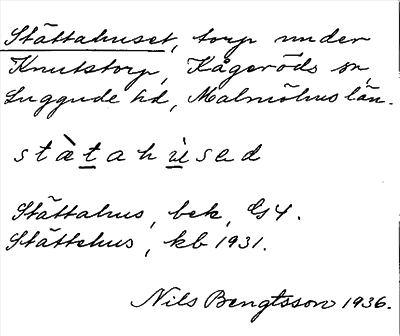 Stättahuset, torp under
Knutstorp, Kågeröds sn,
Luggude hd, Malmöhus län.
stàtahùsad
Stättahus, bek, G4.
Stättehus, kb 1931.
Nils Bengtsson 1936.